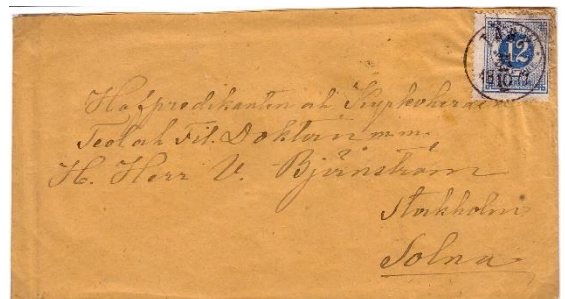 12
18 10 77
Hofpredikanten och Kyrkoherden
Teol och Fil. Doktorn m.m.
H. Herr V. Björnström
Stockholm
Solna